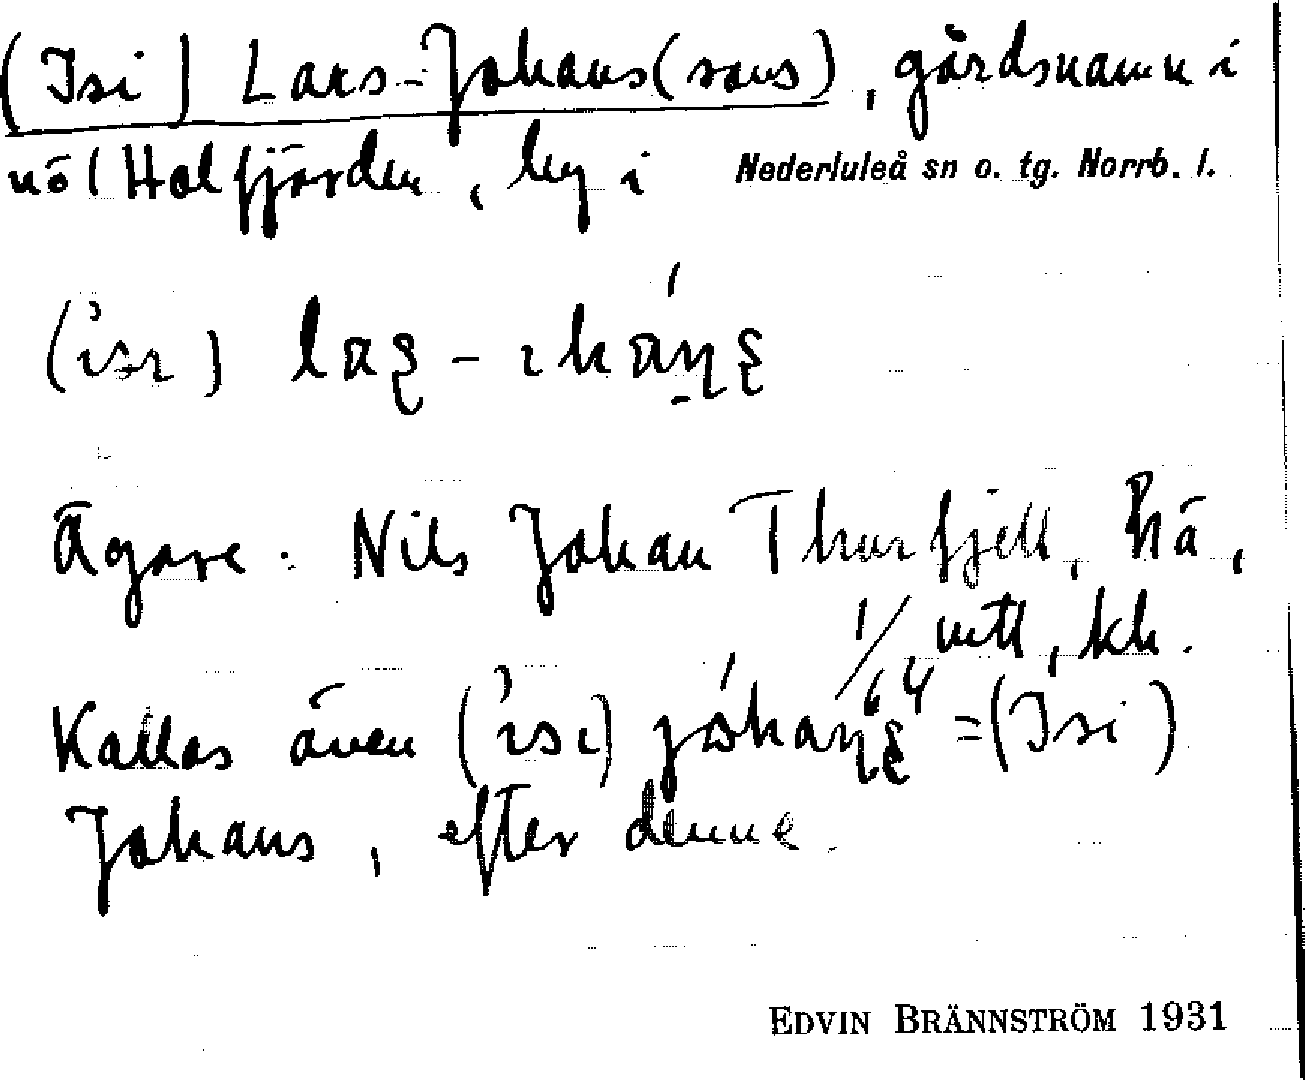 (Isi) Lars-Johans(sons), gårdsnamn i
Holfjärden, by i Nederluleå sn o. tg. Norrb. l.
Ägare: Nils Johan Thurfjell,
1/64 mtl, kh.
Kallas även = (Isi)
Johans, efter denne.
EDVIN BRÄNNSTRÖM 1931